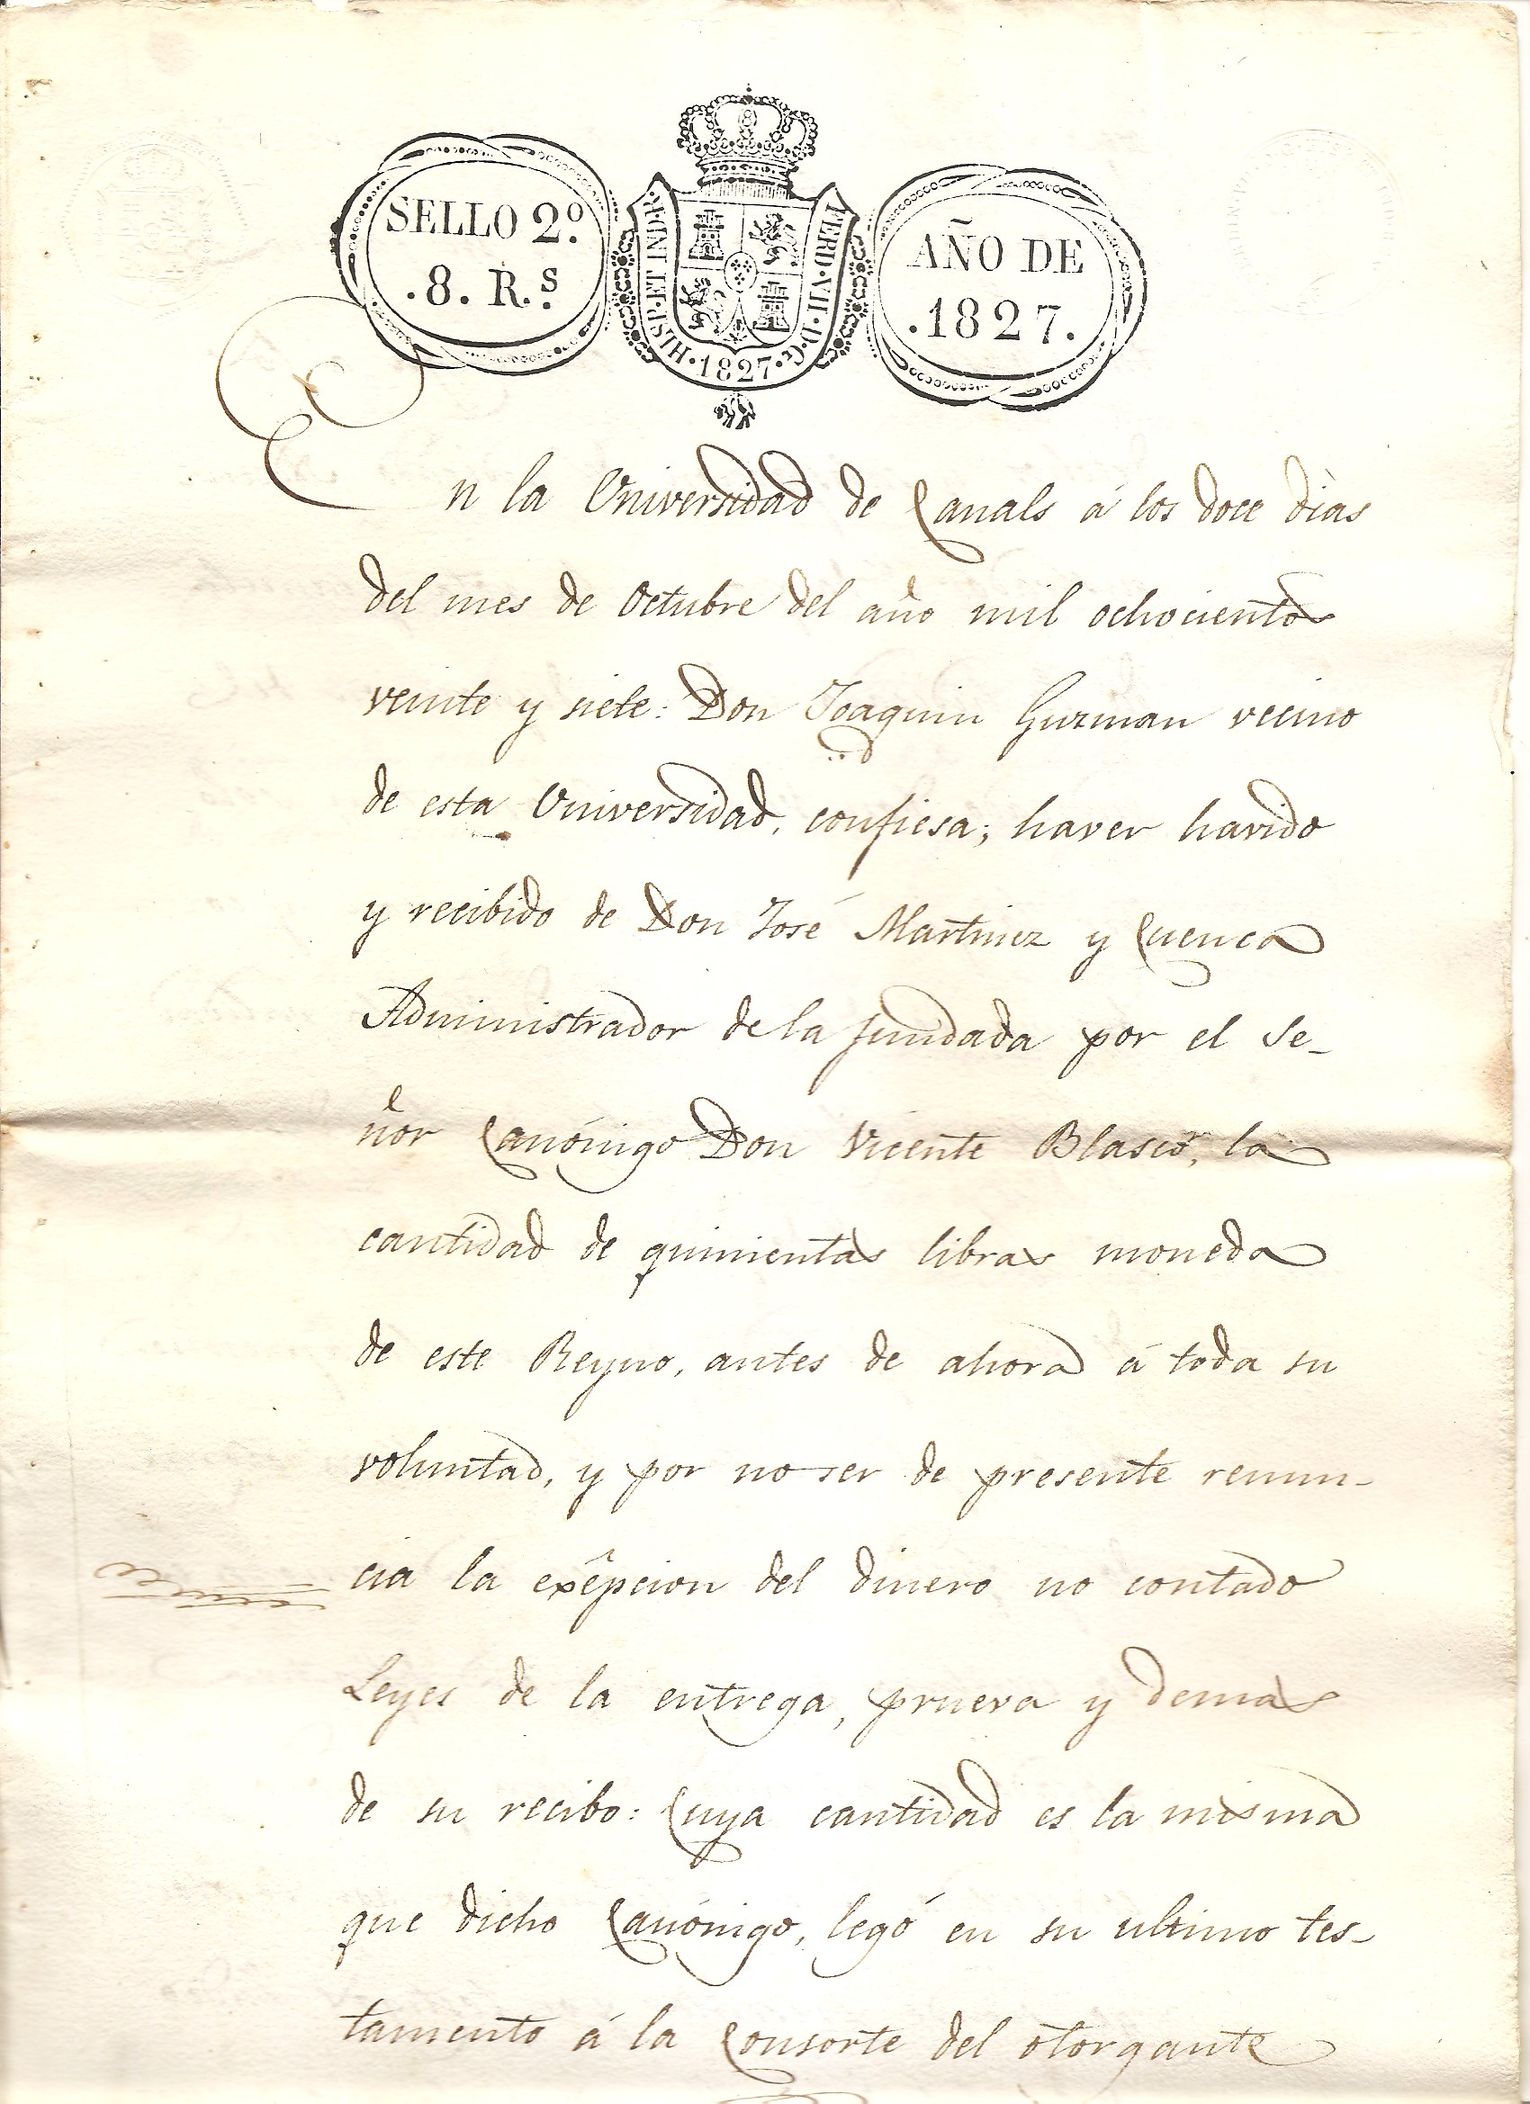 SELLO 2º.
.8. R.s
HISP·ET IND·R· FERD·VII·D·G·
·1827·
AÑO DE
.1827.
En la Universidad de Canals á los doce dias
del mes de Octubre del año mil ochocientos
veinte y siete: Don Joaquin Guzman vecino
de esta Universidad, confiesa; haver havido
y recibido de Don José Martinez y Cuenca
Administrador de la fundada por el Se-
ñor Canónigo Don Vicente Blasco, la
cantidad de quinientas libras moneda
de este Reyno, antes de ahora á toda su
voluntad, y por no ser de presente renun-
cia la exêpcion del dinero no contado
Leyes de la entrega, prueva y demas
de su recibo: Cuya cantidad es la misma
que dicho Canónigo, legó en su ultimo tes-
tamento á la Consorte del otorgante